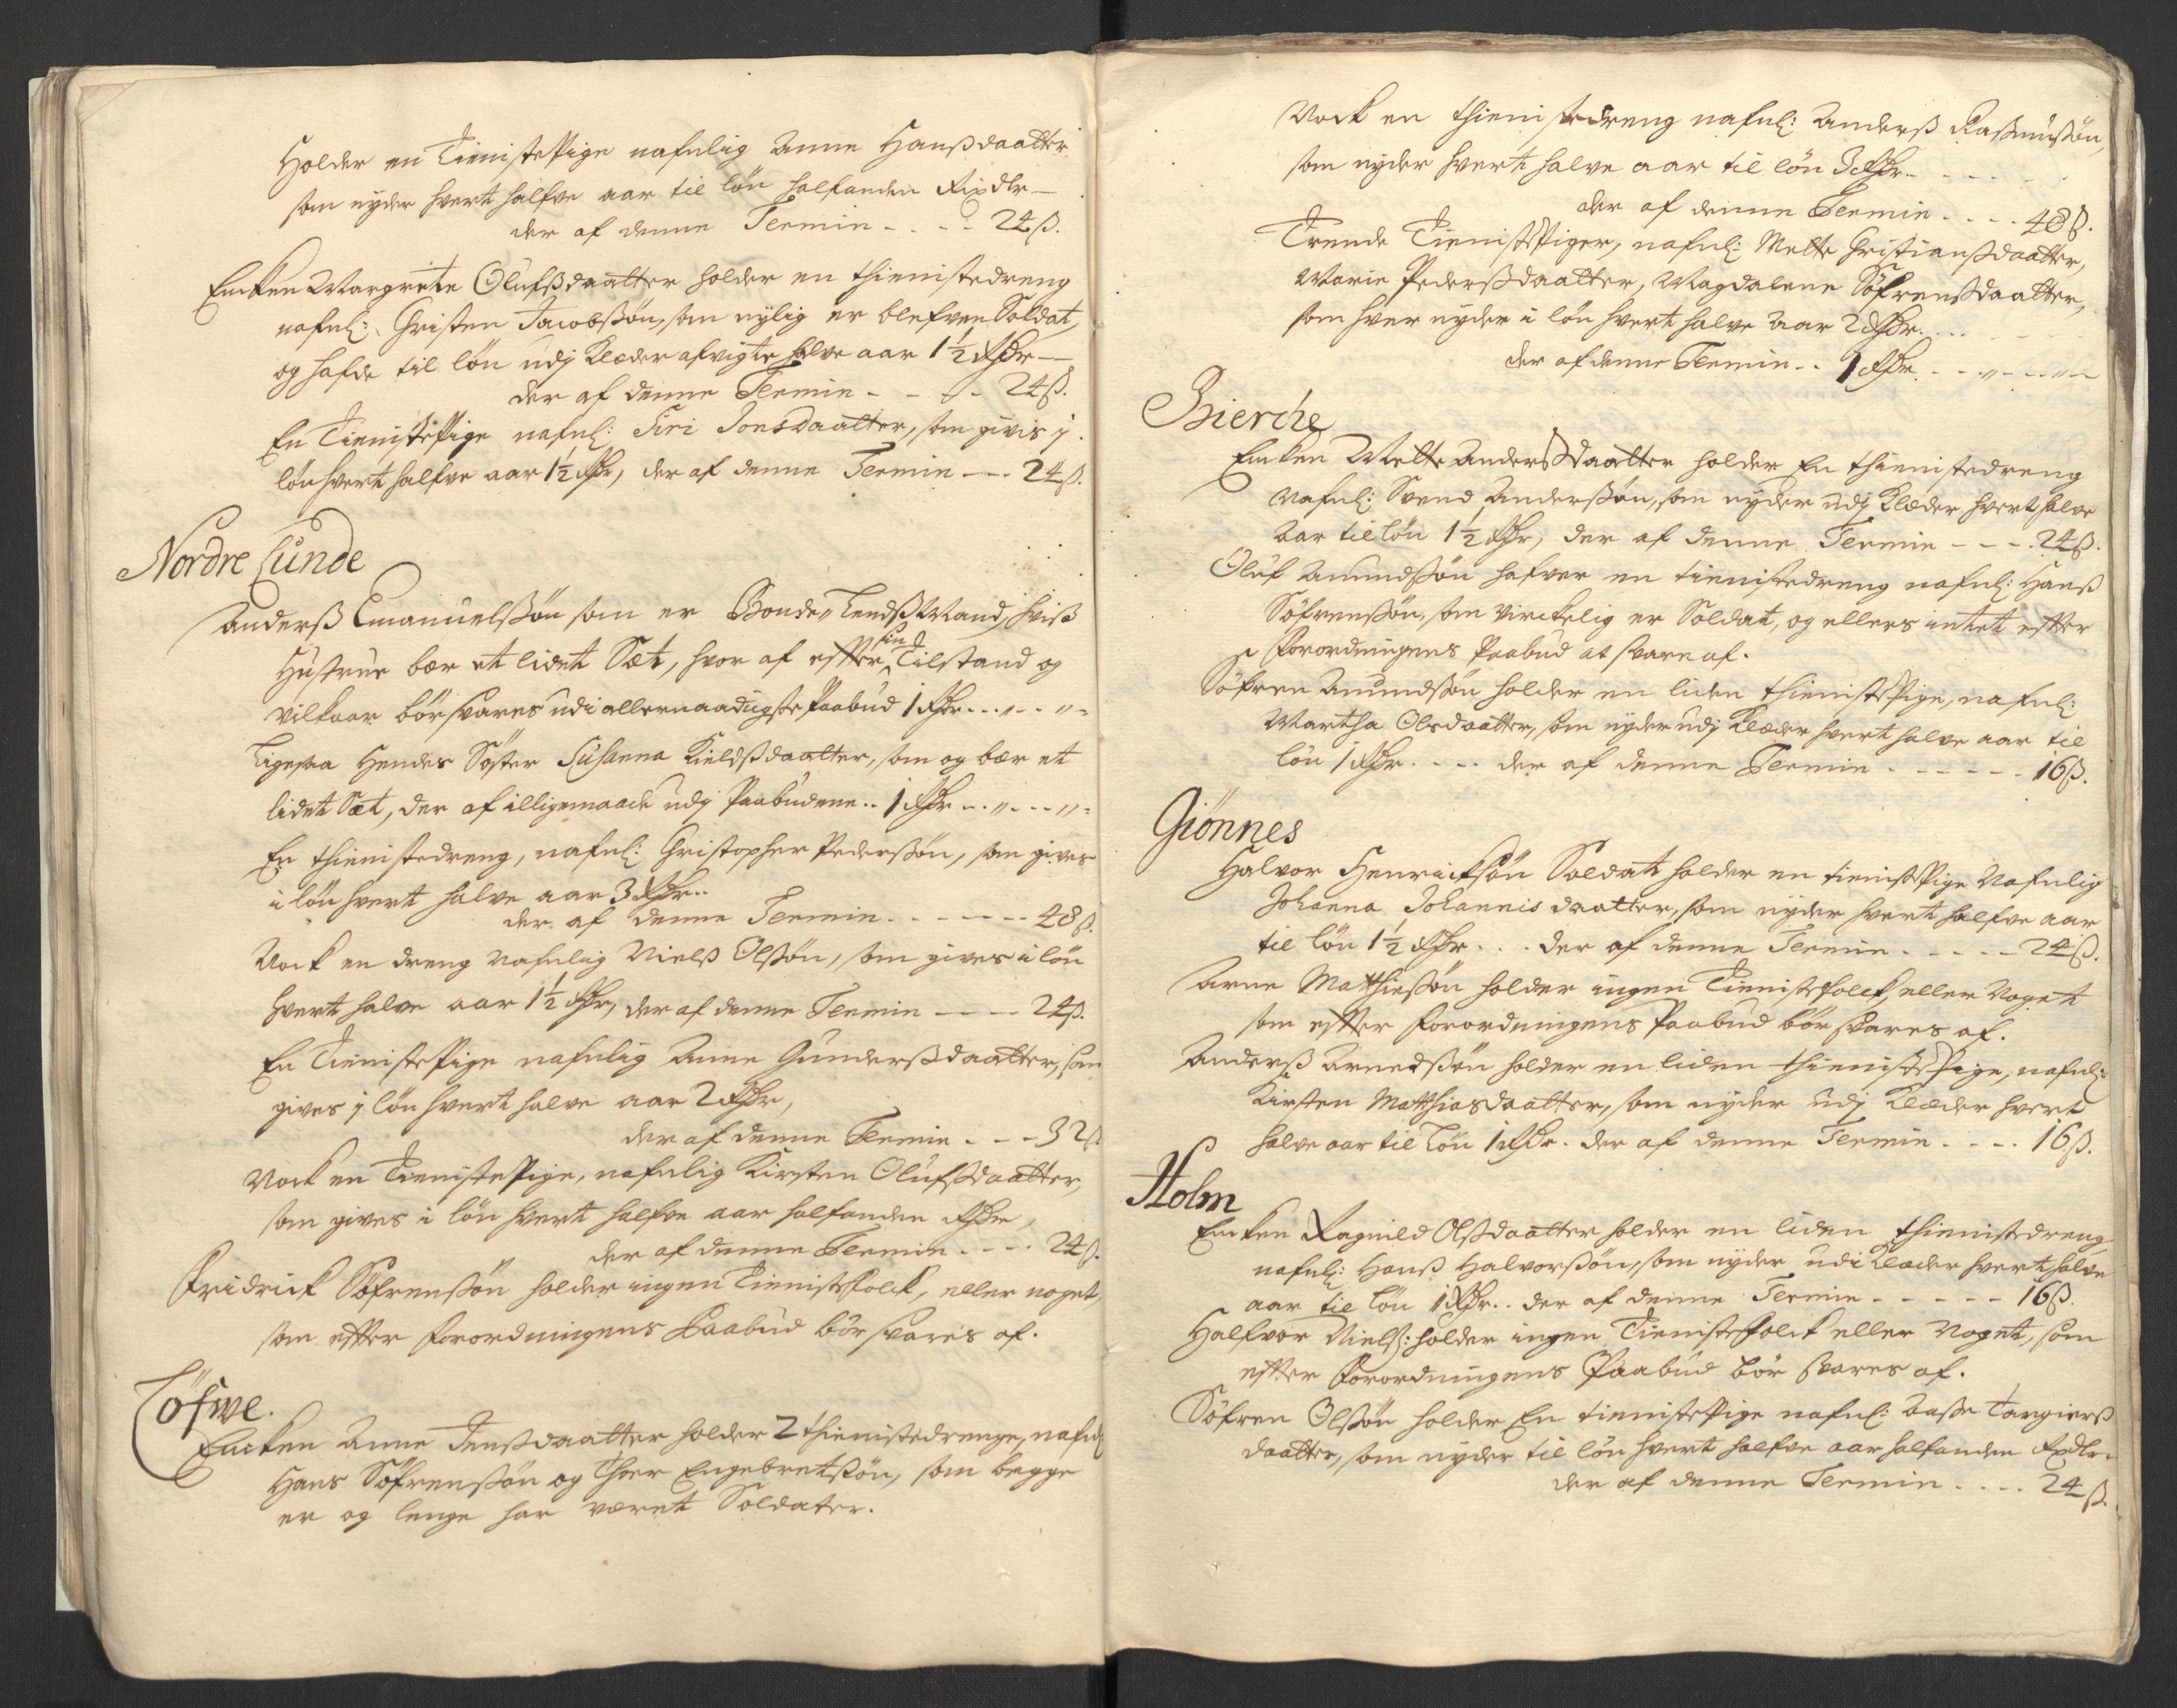 Holder en Tieniste Pige nafnlig Anne Hanßdaatter
som nyder hvert halfve aar til løn halfanden Rixdlr
der af denne Termin - - - - 24 ß.
Encken Margrete Olufßdaatter holder en thienistedreng
nafnl: Christen Jacobßøn, som nylig er blefven Soldat,
og hafde til løn udj Klæder afvigte halve aar 1½ Rdr
der af denne Termin - - - - 24 ß.
En Tieniste Pige nafnl: Siri Jonsdaatter, som givis j
løn hvert halfve aar 1½ Rdr, der af denne Termin --- 24 ß.
Nordre Lunde
Anderß Emanuelßøn som er Bonde Lendß Mand, hviß
Hustrue bær et lidet Sæt, hvor af efter sin Tilstand og
vilkaar bør svares udi allernaadigste Paabud 1 Rdr - - " - - " -
Ligesaa Hendes Søster Susanna Kieldßdaatter, som og bær et
lidet Sæt, der af illigemaade udj Paabudene - - 1 Rdr - - " - - - " -
En thienistedreng, nafnl: Christopher Pederßøn, som gives
i løn hvert halve aar 3 Rdr -
der af denne Termin - - - - - - 48 ß.
Nock en dreng nafnlig Nielß Olßøn, som gives i løn
hvert halve aar 1½ Rdr, der af denne Termin - - - - 24 ß.
En Tieniste Pige nafnlig Anne Gunderßdaatter, som
gives j løn hvert halve aar 2 Rdr,
der af denne Termin - - - 32 ß
Nock en Tieniste Pige, nafnlig Kirsten Olufßdaatter,
som gives i løn hvert halfve aar halfanden Rdr,
der af denne Termin - - - - 24 ß.
Fridrick Søfrenßøn holder ingen Tienistefolck, eller noget,
som efter Forordningens Paabud bør svares af.
Løfwe.
Encken Anne Jenßdaatter holder 2 thienistedrenge, nafnl
Hans Søfrenßøn og Thor Engebretßøn, som begge
er og lenge har været Soldater.
Nock en thienistedreng nafnl: Anderß Rasmusßøn,
som nyder hvert halve aar til løn 3 Rdr - - - - -
der af denne Termin - - - - 48 ß.
Trende Tieniste Piger, nafnl: Mette Christianßdaatter,
Marie Pederßdaatter, Magdalene Søfrenßdaatter,
som hver nyder i løn hvert halve aar 2 Rdr. - - -
der af denne Termin - - 1 Rdr - - " - - - " -
Bierche
Encken Mette Anderßdaatter holder En thienistedreng
nafnl: Svend Anderßøn, som nyder udj Klæder hvert halve
aar til løn 1½ Rdr, der af denne Termin - - - 24 ß.
Oluf Amundßøn hafver en tienistedreng nafnl: Hanß
Søfrenßøn, som virckelig er Soldat, og ellers intet efter
Forordningens Paabud at svare af.
Søfren Amundßøn holder en liden thieniste Pige, nafnl:
Martha Olsdaatter, som nyder udj Klæder hvert halve aar til
løn 1 Rdr. - - - der af denne Termin - - - - - - 16 ß.
Giønnes
Halvor Henrichsøn Soldat holder en tieniste Pige nafnlig
Johanna Johannis daatter, som nyder hvert halfve aar
til løn 1½ Rdr - - - der af denne Termin - - - - - 24 ß.
Arne Matthießøn holder ingen Tienistefolck, eller noget
som efter Forordningens Paabud bør svares af.
Anderß Arneßøn holder en liden thieniste Pige, nafnl:
Kirsten Matthiasdaatter, som nyder udj Klæder hvert
halve aar til løn 1 Rdr. der af denne Termin - - - - 16 ß.
Holm
Encken Ragnild Olßdaatter holder en liden thienistedreng
nafnl: Hanß Halvorßøn, som nyder udi Klæder hvert halve
aar til løn 1 Rdr - - der af denne Termin - - - - - 16 ß.
Halfvor Nielß: holder ingen Tienistefolck eller noget, som
efter Forordningens Paabud bør svares af.
Søfren Olßøn holder En tieniste Pige nafnl: Aaße Targierß
daatter, som nyder til løn hvert halfve aar halfanden Rxdlr.
der af denne Termin - - - - 24 ß.